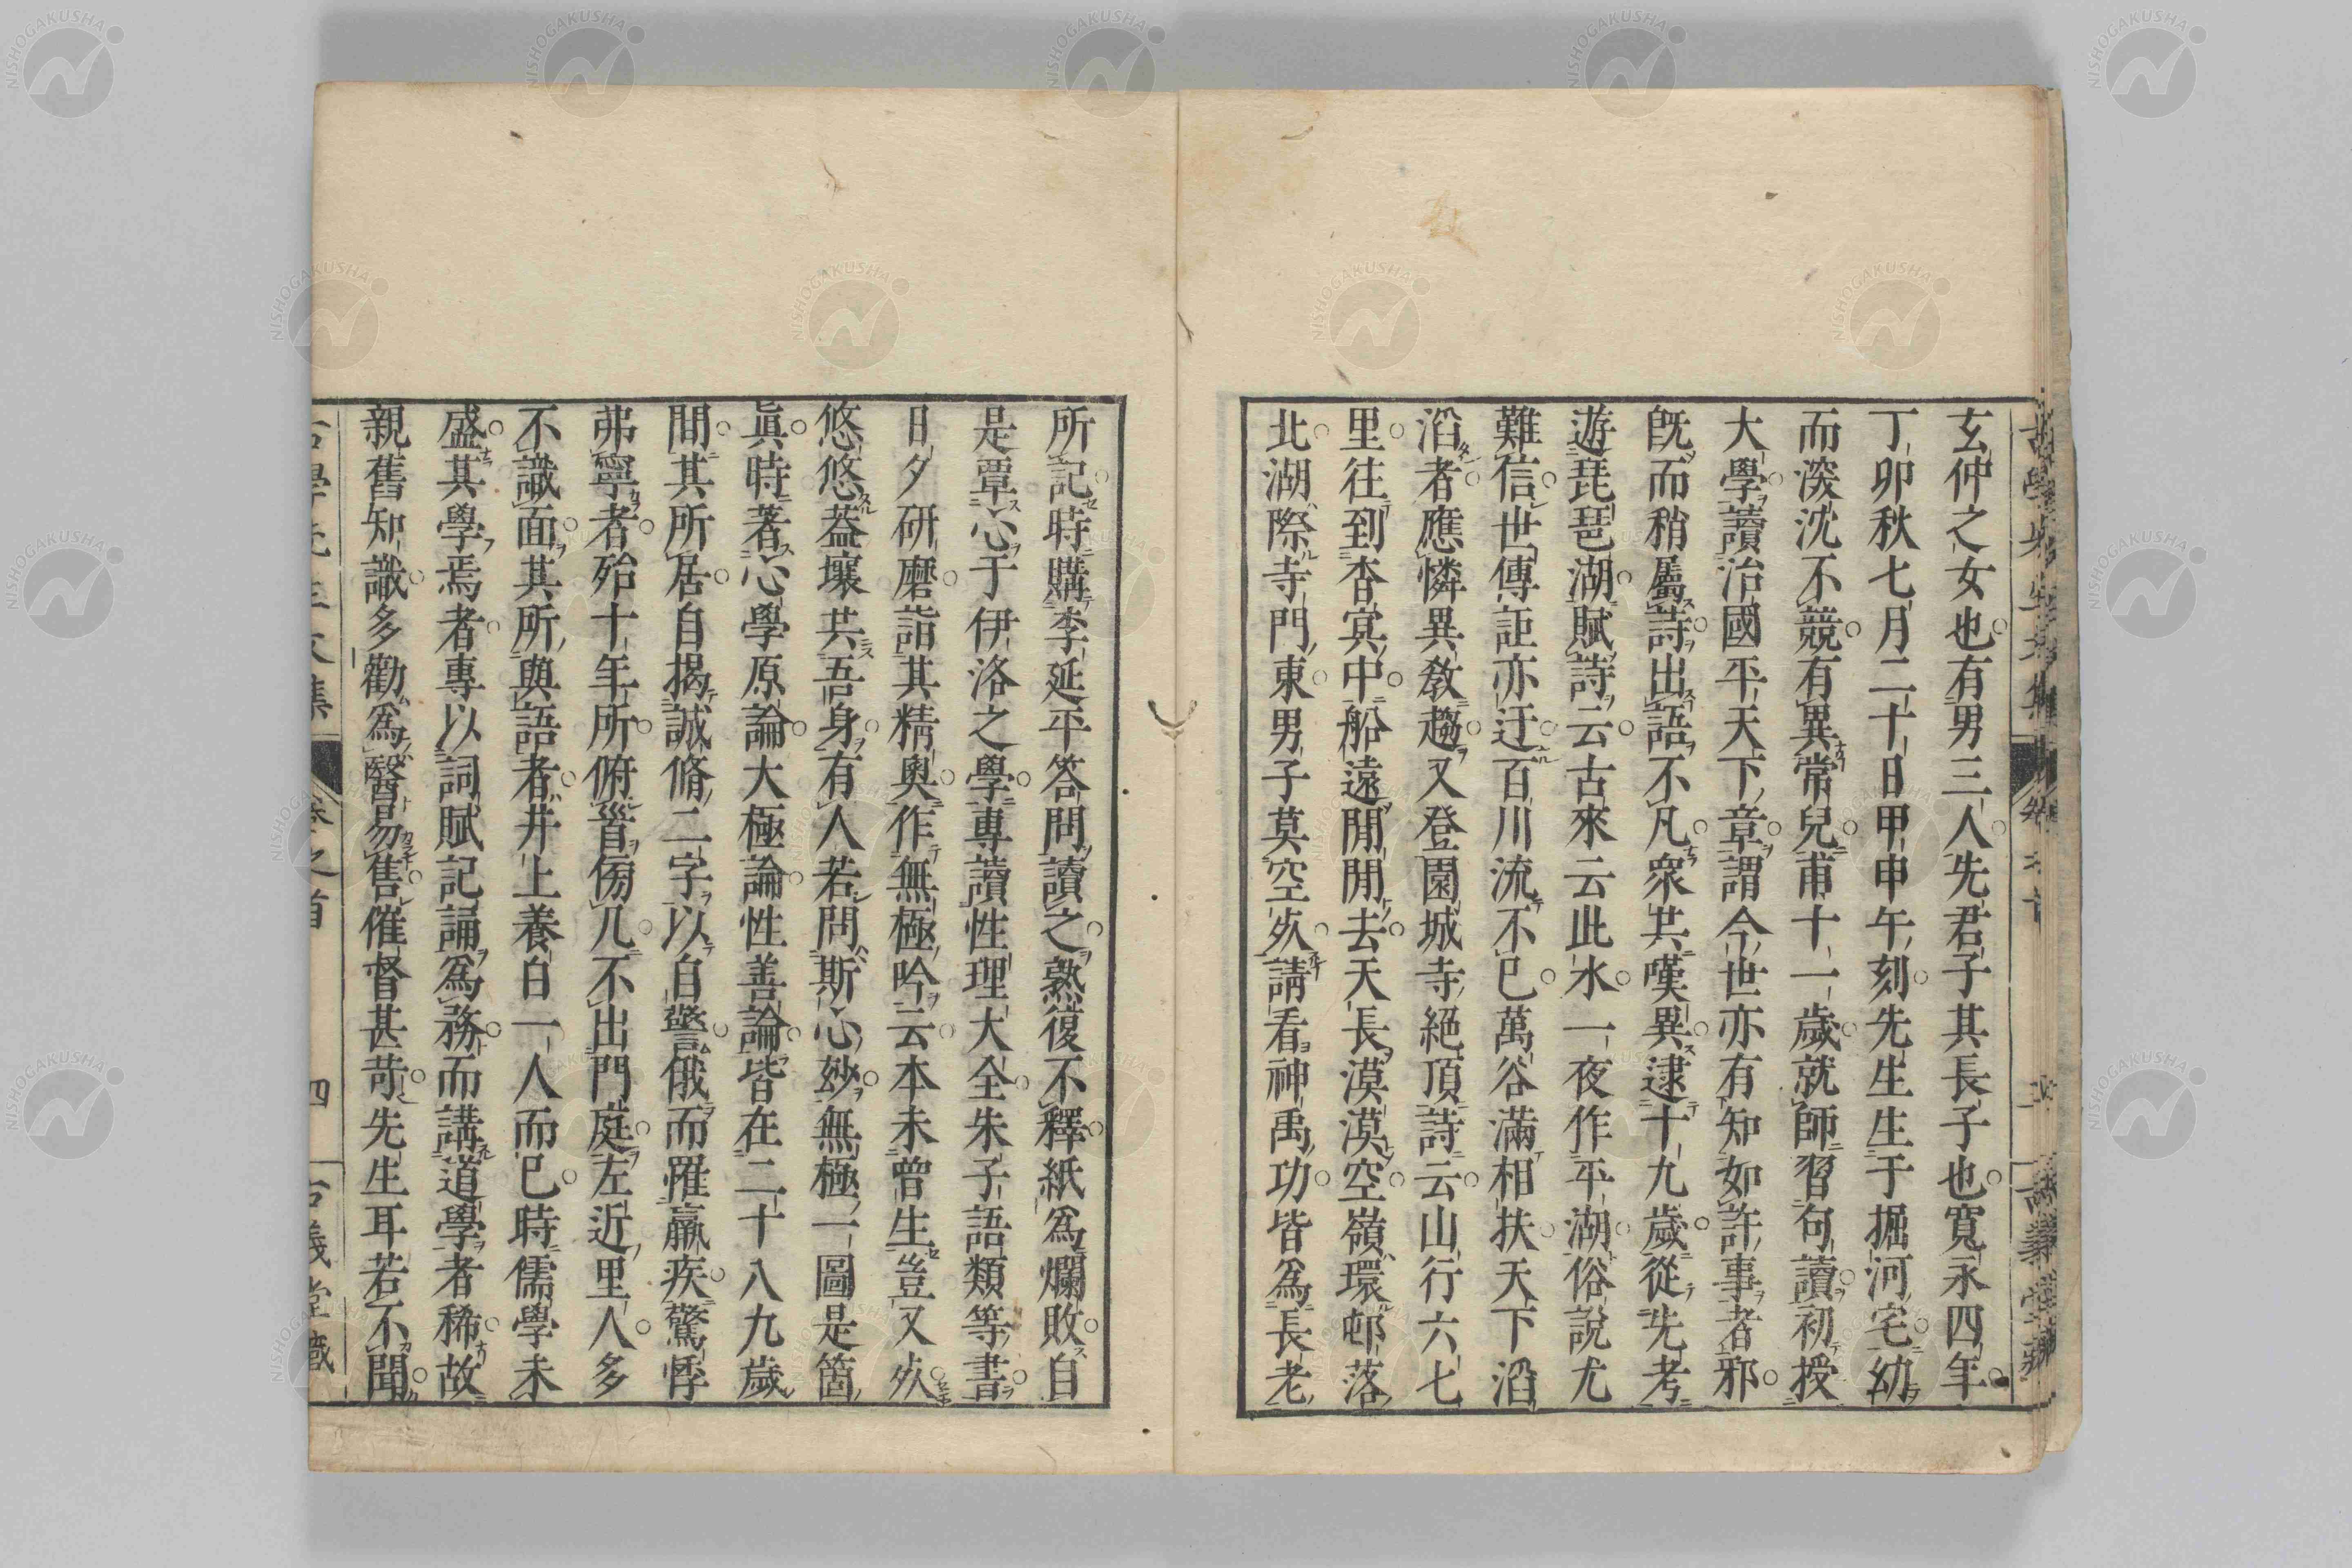 玄仲之女也有男三人先君子其長子也寬永四年
丁卯秋七月二十日甲申午刻先生生于掘河宅幼
而深沈不競有異常兒甫十一歲就師習句讀初授
大學讀治國平天下章謂今世亦有知如許事者邪
既而稍屬詩出語不凡衆共嘆異逮十九歲從先考
遊琵琶湖賦詩云古來云此水一夜作平湖俗說尤
難信世傳詎亦迂百川流不已萬谷滿相扶天下滔
滔者應憐異教趨又登園城寺絕頂詩云山行六七
里往到杳冥中船遠閒閒去天長漠漠空嶺環邨落
北湖際寺門東男子莫空死請看神禹功皆爲長老
所記時購李延平答問讀之熟復不釋紙爲爛敗自
是覃心于伊洛之學專讀性理大全朱子語類等書
日夕研磨詣其精奧作無極吟云本未曾生豈又死
悠悠蓋壤共吾身有人若問斯心玅無極一圖是箇
眞時著心學原論大極論性善論皆在二十八九歲
間其所居自揭誠脩二字以自警俄而罹羸疾驚悸
弗寧者殆十年所俯首傍几不出門庭左近里人多
不識面其所與語者井上養白一人而已時儒學未
盛其學焉者專以詞賦記誦爲務而講道學者稀故
親舊知識多勸爲醫易售催督甚苛先生耳若不聞
古學先生文集 卷之首 四 古義堂藏
NISHOGAKUSHA